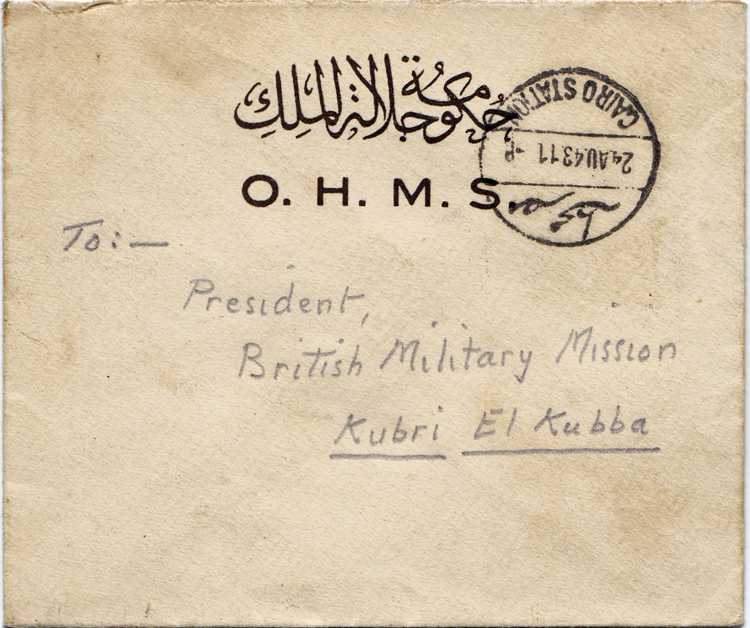 حكومة جلالة الملك
O. H. M. S.
CAIRO STATION
24.AU.43.11 -P
To:—
President,
British Military Mission
Kubri El Kubba